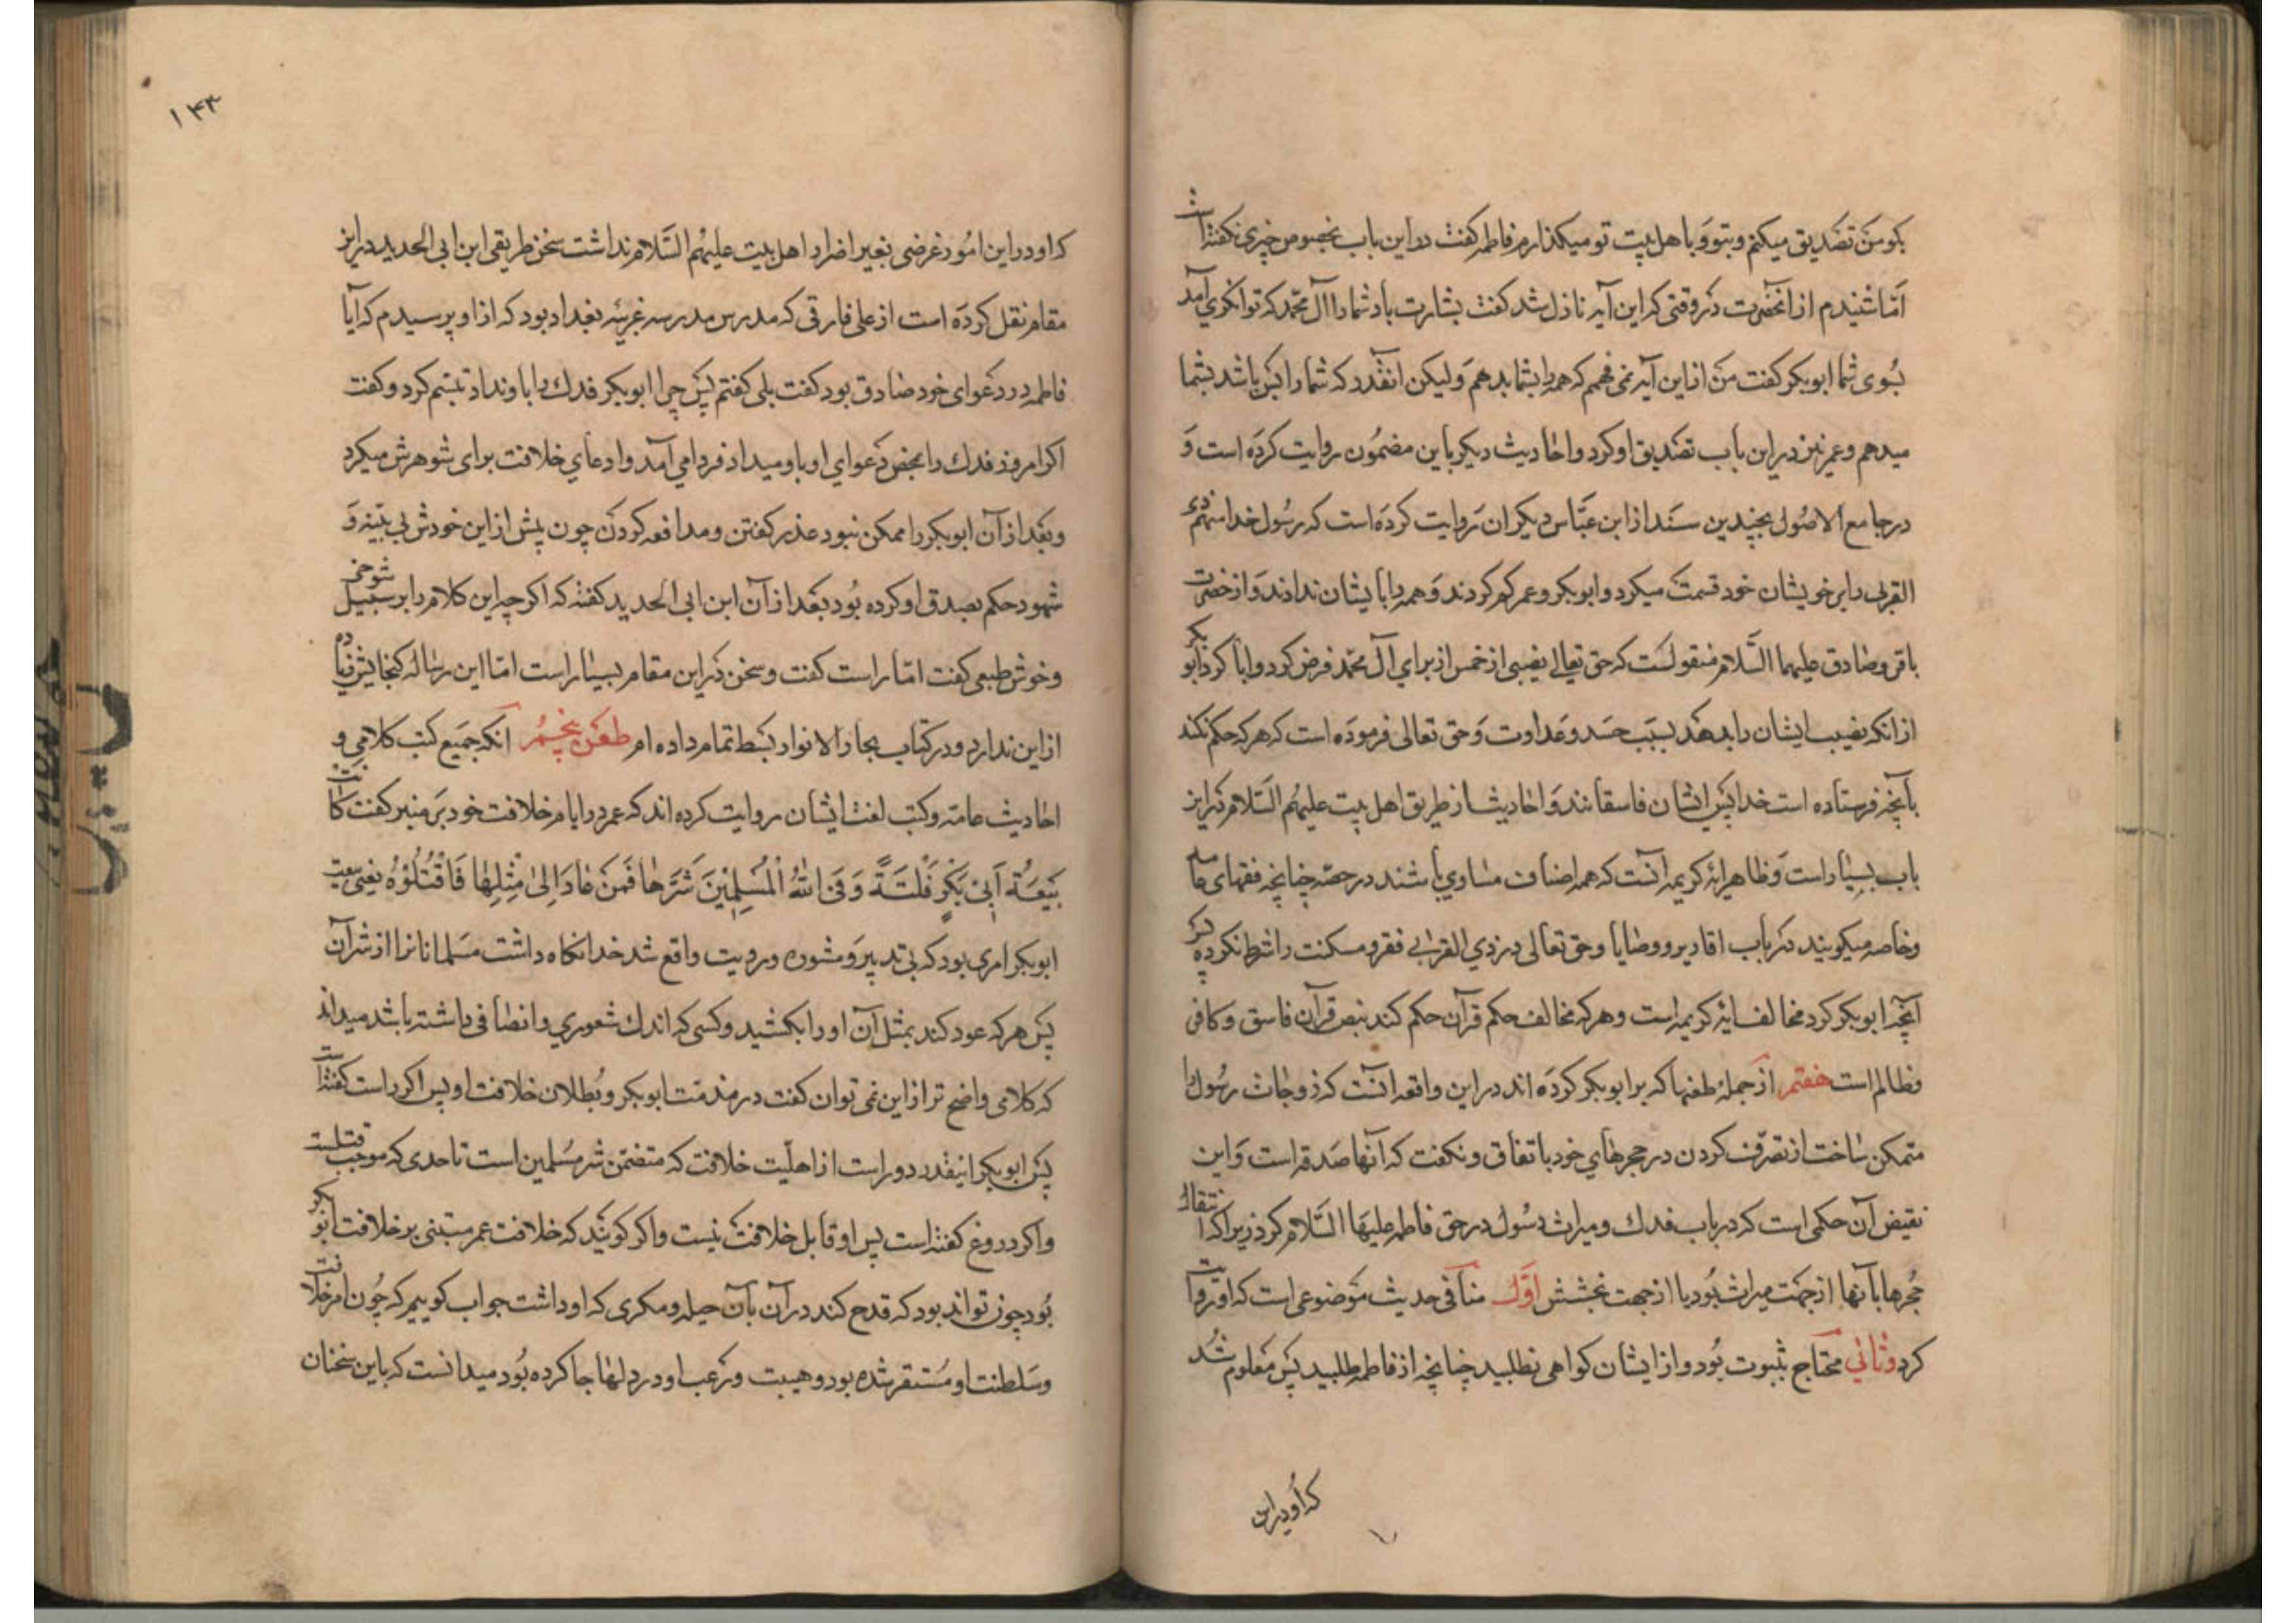 بکو من تصدیق میکنم و بتو و با هل بیت تو میکذارم فاطمه کفت در این باب بخصوص چیزی نکفته است
اما شنیدم از انحضرت در وقتی که این آیه نازل شد کفت بشارت باد شما را آل محمد که توانکری آمد
بسوی شما ابوبکر کفت من از این آیه نمی فهمم که همه را بشما بدهم ولیکن انقدر که شما را بس باشد بشما
میدهم و عمر نیز در این باب تصدیق او کرد و احادیث دیکر باین مضمون روایت کرده است و
در جامع الاصول بچندین سند از ابن عباس دیکران روایت کرده است که رسول خدا سهم ذی
القربی را بر خویشان خود قسمت میکرد و ابوبکر و عمر کم کردند و همه را بایشان ندادند و از حضرت
باقر و صادق علیهما السلام منقولست که حق تعالی نصیبی از خمس از برای آل محمد فرض کرد و ابا کرد ابو بکر
از انکه نصیب ایشان را بدهد بسبب حسد و عداوت و حق تعالی فرموده است که هر که حکم نکند
بآنچه فرستاده است خدا پس ایشان فاسقانند و احادیث از طریق اهل بیت علیهم السلام در این
باب بسیار است و ظاهر ایه کریمه آنست که همه اصناف مساوی باشند در حصه چنانچه فقهای عامه
و خاصه میکویند در باب اقادیر و وصایا و حق تعالی در ذی القربی فقر و مسکنت را شرط نکرده پس
آنچه ابوبکر کرد مخالف ایه کریمه است و هر که مخالف حکم قرآن حکم کند بنص قرآن فاسق و کافر
و ظالم است هفتم از جمله طعنها که بر ابوبکر کرده اند در این واقعه انست که زوجات رسول را
متمکن ساخت از تصرف کردن در حجرهای خود باتفاق و نکفت که آنها صدقه است و این
نقیض آن حکمی است که در باب فدک و میراث رسول در حق فاطمه علیها السلام کرد زیرا که انتقال
حجرها بآنها از جهت میراث بود یا از جهت بخشش اول منافی حدیث موضوعی است که او روایت
کرد و ثانی محتاج بثبوت بود و از ایشان کواهی نطلبید چنانچه از فاطمه طلبید پس معلوم شد
که او در این
۱۴۳
که او در این امور غرضی بغیر اضرار اهل بیت علیهم السلام نداشت سخن طریفی ابن ابی الحدید در این
مقام نقل کرده است از علی فارقی که مدرس مدرسه غربیه بغداد بود که از او پرسیدم که آیا
فاطمه در دعوای خود صادق بود کفت بلی کفتم پس چرا ابوبکر فدک را باو نداد تبسم کرد و کفت
اکر امروز فدک را بمحض دعوای او باو میداد فردا می آمد و ادعای خلافت برای شوهرش میکرد
و بعد از آن ابوبکر را ممکن نبود عذر کفتن و مدافعه کردن چون پیش از این خودش بی بینه و
شهود حکم بصدق او کرده بود بعد از آن ابن ابی الحدید کفته که اکر چه این کلام را بر سبیل شوخی
و خوش طبعی کفت اما راست کفت و سخن در این مقام بسیار است اما این رساله کنجایش زیاده
از این ندارد و در کتاب بحار الانوار بسط تمام داده ام طعن پنجم آنکه جمیع کتب کلامی و
احادیث عامه و کتب لغت ایشان روایت کرده اند که عمر در ایام خلافت خود بر منبر کفت کانت
بَیْعَةُ اَبِیْ بَکْرٍ فَلْتَةً وَقَی اللهُ الْمُسْلِمِیْنَ شَرَّهَا فَمَنْ عَادَ اِلیٰ مِثْلِهَا فَاقْتُلُوْهُ یعنی بیعت
ابوبکر امری بود که بی تدبیر و مشوره و رویت واقع شد خدا نکاه داشت مسلمانانرا از شر آن
پس هر که عود کند بمثل آن او را بکشید و کسی که اندک شعوری و انصافی داشته باشد میداند
که کلامی واضح تر از این نمی توان کفت در مذمت ابوبکر و بطلان خلافت او پس اکر راست کفته است
پس ابوبکر اینقدر دور است از اهلیت خلافت که متضمن شر مسلمین است تا حدی که موجب قتلست
و اکر دروغ کفته است پس او قابل خلافت نیست و اکر کویند که خلافت عمر مبتنی بر خلافت ابو بکر
بود چون تواند بود که قدح کند در آن بآن حیله و مکری که او داشت جواب کوییم که چون امر خلافت
و سلطنت او مستقر شده بود و هیبت و رعب او در دلها جا کرده بود میدانست که باین سخنان